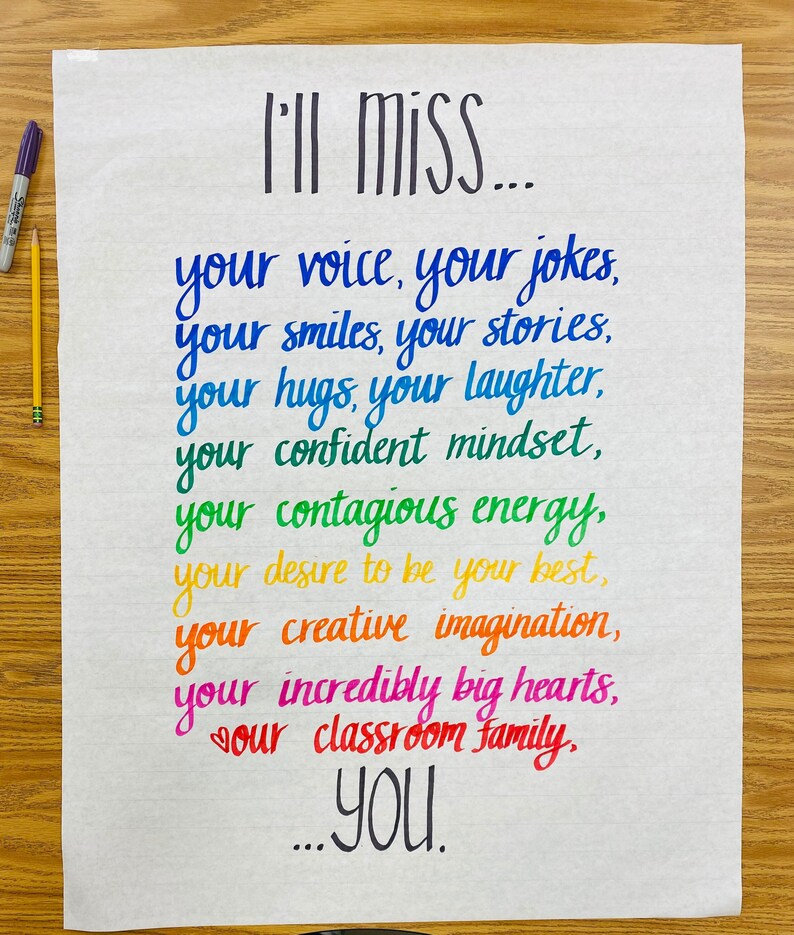 I'll miss...
your voice, your jokes,
your smiles, your stories,
your hugs, your laughter,
your confident mindset,
your contagious energy,
your desire to be your best,
your creative imagination,
your incredibly big hearts,
♡our classroom family,
...you.
Sharpie